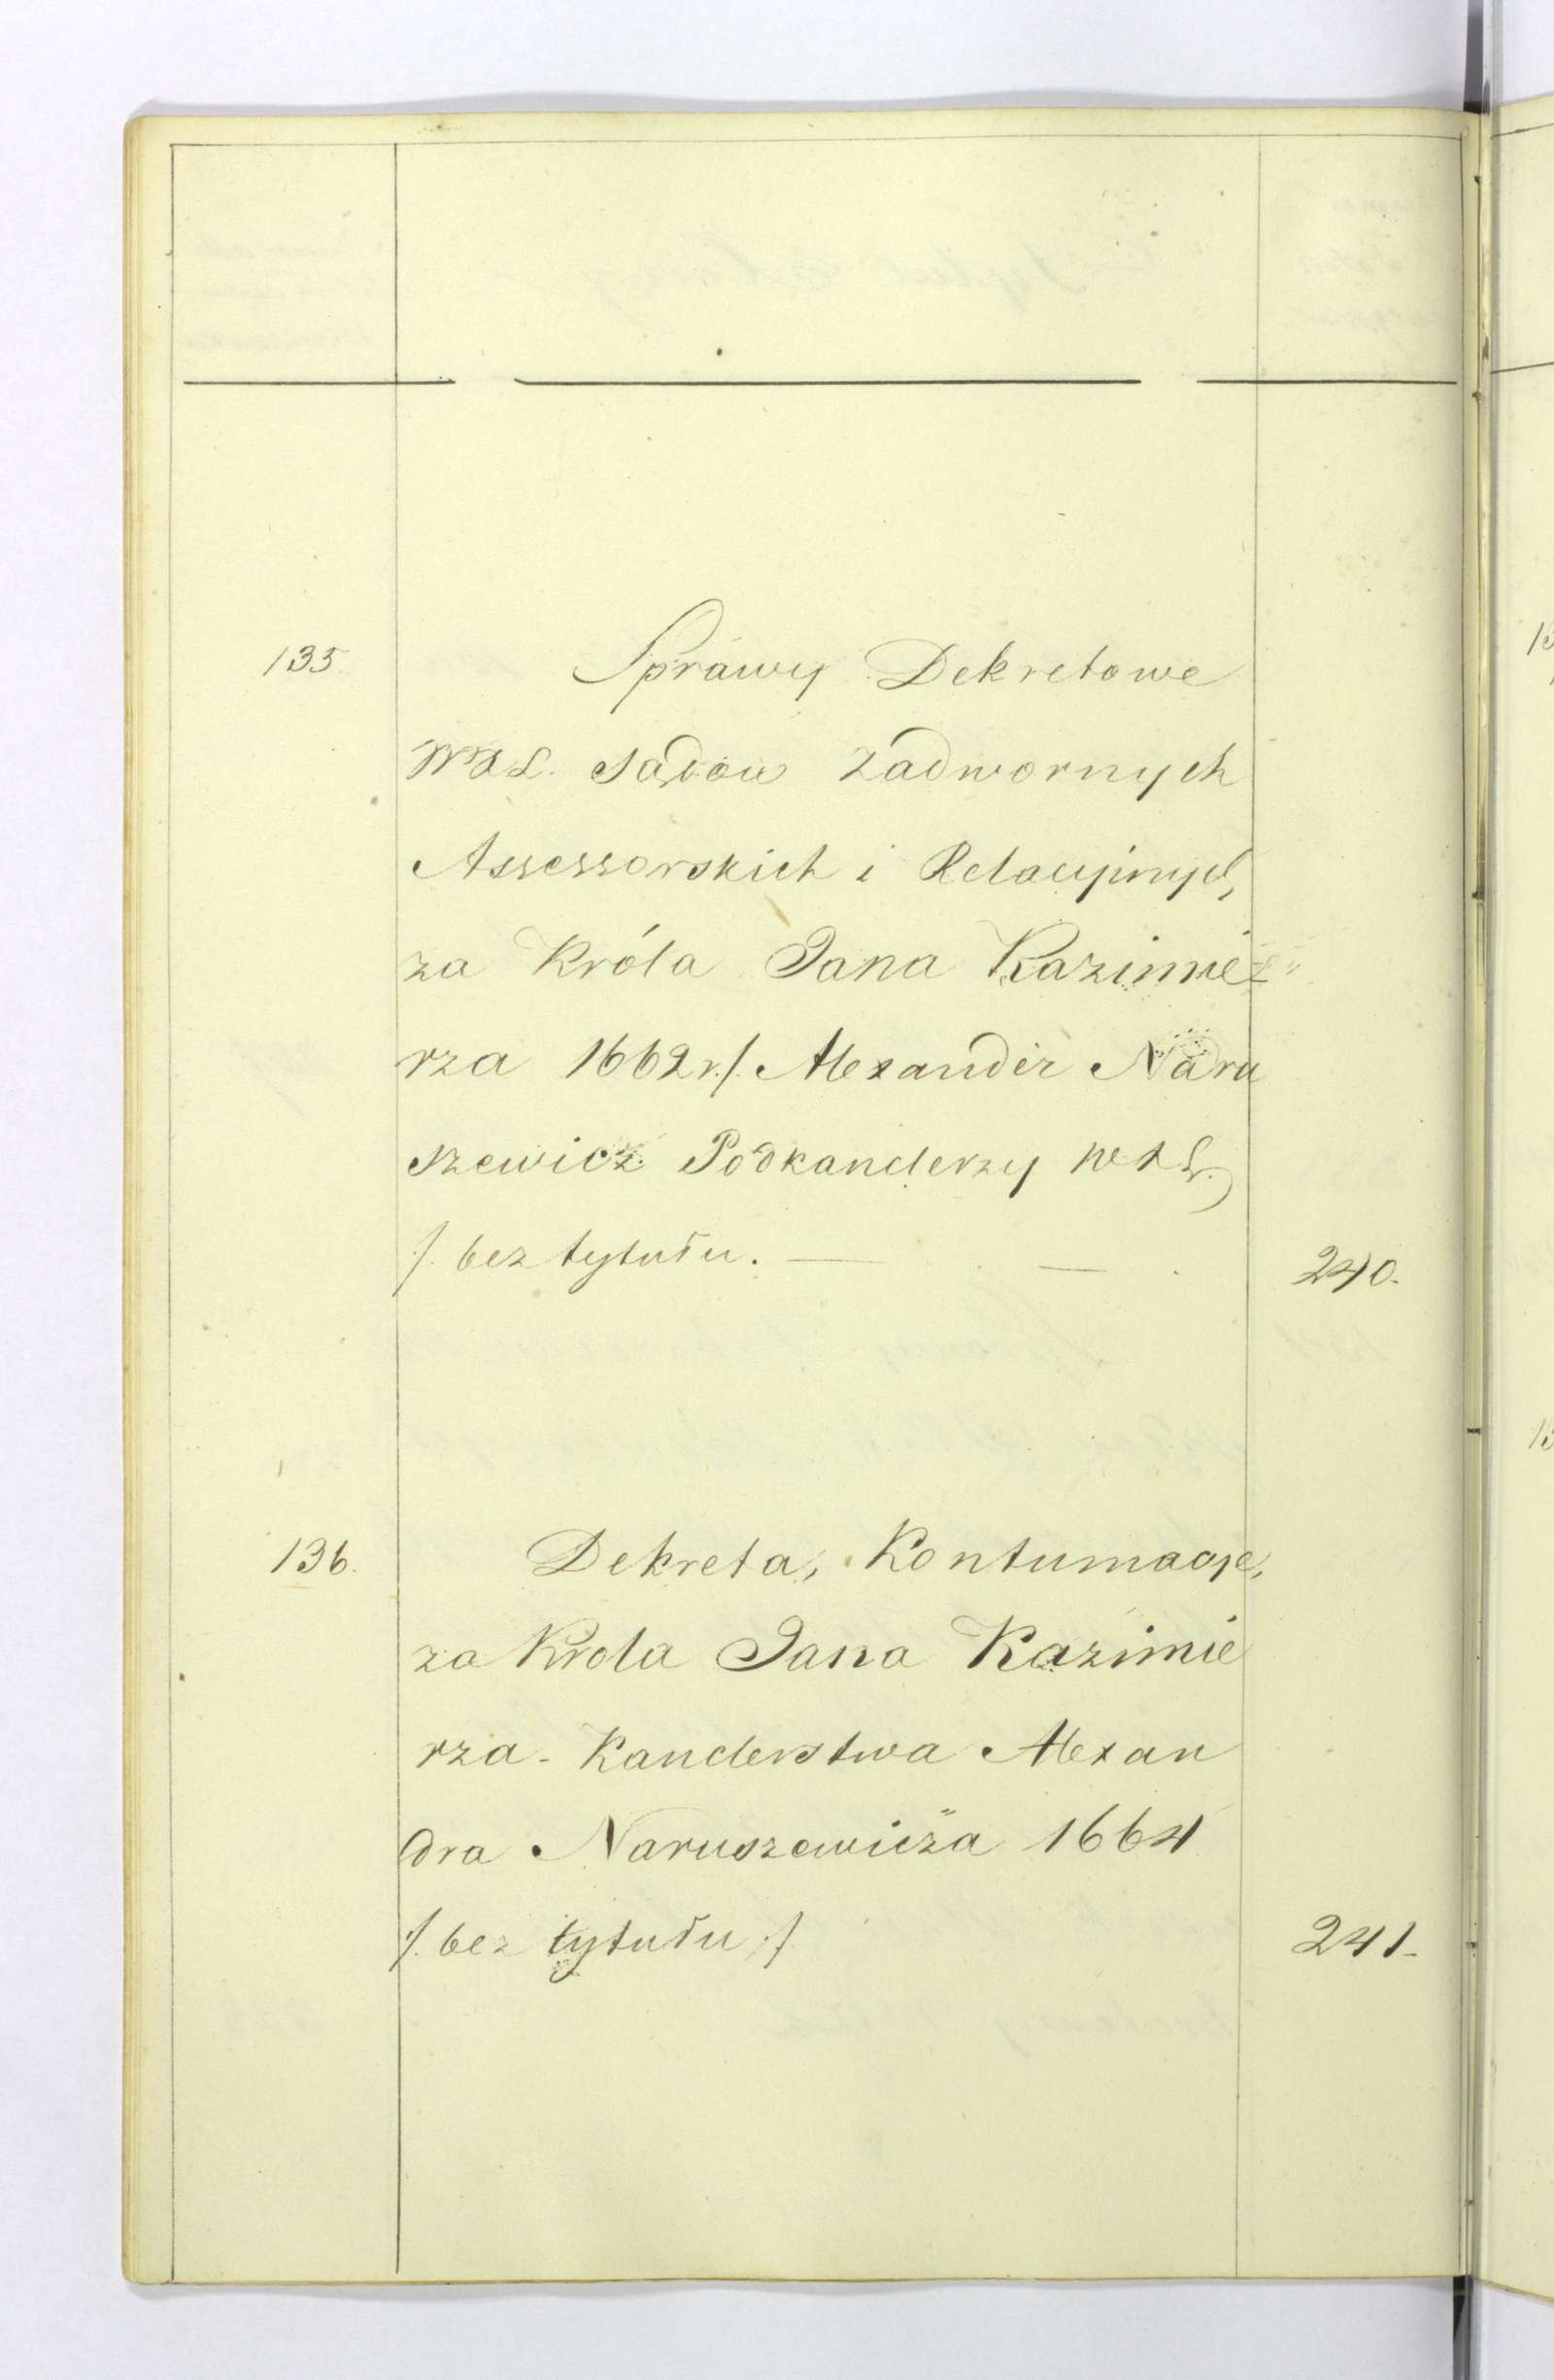 135. Sprawy Dekretowe
WXL. Sądow Zadwornych
Assessorskich i Relacyinych,
za Króla Jana Kazimie
rza 1662 r./. Alexander Naru
szewicz Podkanclerzy WXL.)
/. bez tytułu. — — 240.
136. Dekreta, Kontumacye,
za Krola Jana Kazimie
rza - Kanclerstwa Alexan
dra Naruszewicza 1664
/. bez tytułu ./ 241.